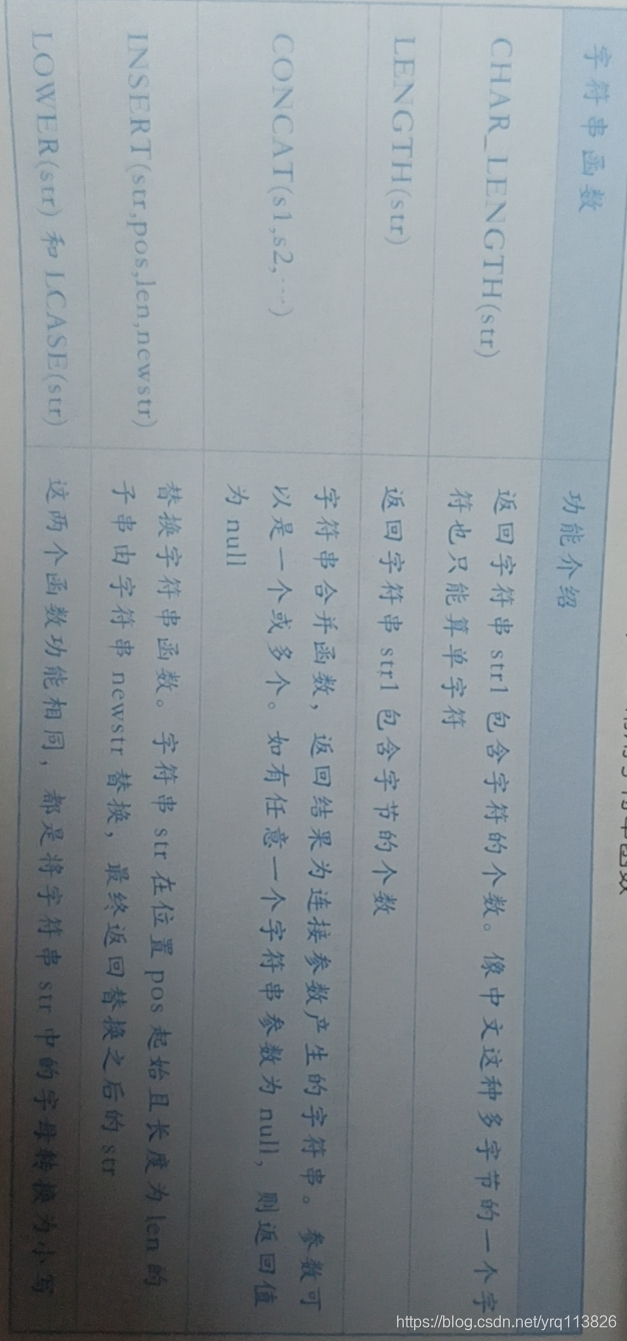 常用字符串函数
字符串函数
功能介绍
CHAR_LENGTH(str)
返回字符串 str1 包含字符的个数。像中文这种多字节的一个字
符也只能算单字符
LENGTH(str)
返回字符串 str1 包含字节的个数
CONCAT(s1,s2,…)
字符串合并函数，返回结果为连接参数产生的字符串。参数可
以是一个或多个。如有任意一个字符串参数为 null，则返回值
为 null
INSERT(str,pos,len,newstr)
替换字符串函数。字符串 str 在位置 pos 起始且长度为 len 的
子串由字符串 newstr 替换，最终返回替换之后的 str
LOWER(str) 和 LCASE(str)
这两个函数功能相同，都是将字符串 str 中的字母转换为小写
https://blog.csdn.net/yrq113826